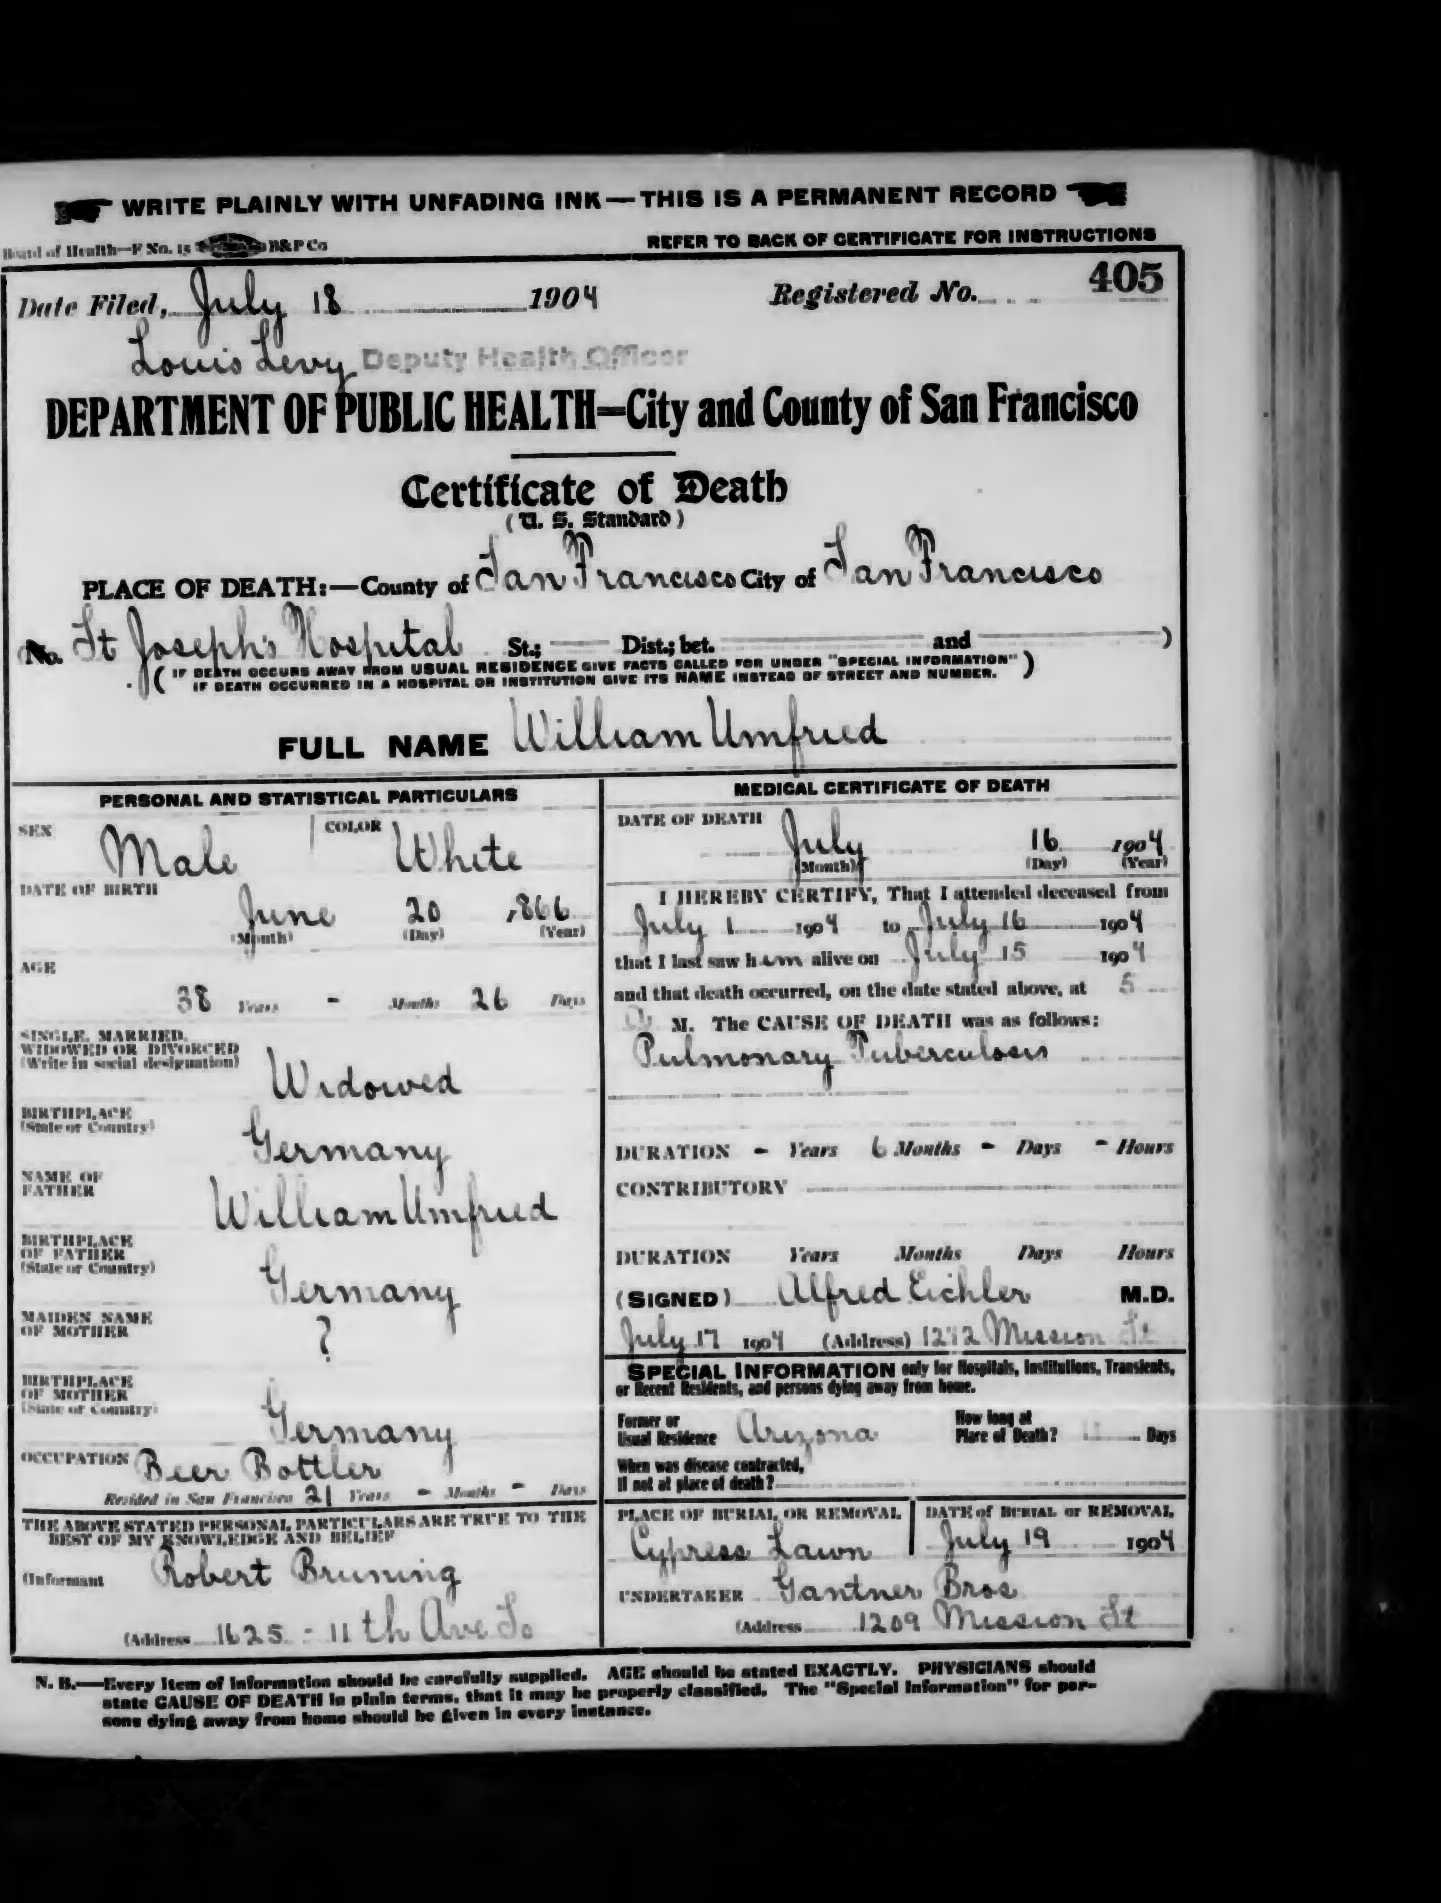 WRITE PLAINLY WITH UNFADING INK—THIS IS A PERMANENT RECORD
Board of Health—F No. 15 B&P Co
REFER TO BACK OF CERTIFICATE FOR INSTRUCTIONS
Date Filed, July 18 1904 Registered No. 405
Louis Levy Deputy Health Officer
DEPARTMENT OF PUBLIC HEALTH—City and County of San Francisco
Certificate of Death
(U. S. Standard)
PLACE OF DEATH:—County of San Francisco City of San Francisco
No. St Joseph's Hospital St.; Dist.; bet. and )
( IF DEATH OCCURS AWAY FROM USUAL RESIDENCE GIVE FACTS CALLED FOR UNDER "SPECIAL INFORMATION" )
IF DEATH OCCURRED IN A HOSPITAL OR INSTITUTION GIVE ITS NAME INSTEAD OF STREET AND NUMBER.
FULL NAME William Umfried
PERSONAL AND STATISTICAL PARTICULARS
SEX Male COLOR White
DATE OF BIRTH
June 20 1866
(Month) (Day) (Year)
AGE
38 Years - Months 26 Days
SINGLE, MARRIED,
WIDOWED OR DIVORCED
(Write in social designation)
Widowed
BIRTHPLACE
(State or Country)
Germany
NAME OF
FATHER
William Umfried
BIRTHPLACE
OF FATHER
(State or Country)
Germany
MAIDEN NAME
OF MOTHER
?
BIRTHPLACE
OF MOTHER
(State or Country)
Germany
OCCUPATION Beer Bottler
Resided in San Francisco 21 Years - Months - Days
THE ABOVE STATED PERSONAL PARTICULARS ARE TRUE TO THE
BEST OF MY KNOWLEDGE AND BELIEF
(Informant Robert Bruning
(Address 1625 - 11th Ave So
MEDICAL CERTIFICATE OF DEATH
DATE OF DEATH
July 16 1904
(Month) (Day) (Year)
I HEREBY CERTIFY, That I attended deceased from
July 1 1904 to July 16 1904
that I last saw him alive on July 15 1904
and that death occurred, on the date stated above, at 5
M. The CAUSE OF DEATH was as follows:
Pulmonary Tuberculosis
DURATION - Years 6 Months - Days - Hours
CONTRIBUTORY
DURATION Years Months Days Hours
(SIGNED) Alfred Eichler M.D.
July 17 1904 (Address) 1272 Mission St
SPECIAL INFORMATION only for Hospitals, Institutions, Transients,
or Recent Residents, and persons dying away from home.
Former or
Usual Residence Arizona
How long at
Place of Death? Days
When was disease contracted,
If not at place of death?
PLACE OF BURIAL OR REMOVAL
Cypress Lawn
DATE of BURIAL or REMOVAL
July 19 1904
UNDERTAKER Gantner Bros
(Address 1209 Mission St
N. B.—Every item of information should be carefully supplied. AGE should be stated EXACTLY. PHYSICIANS should
state CAUSE OF DEATH in plain terms, that it may be properly classified. The "Special Information" for per-
sons dying away from home should be given in every instance.